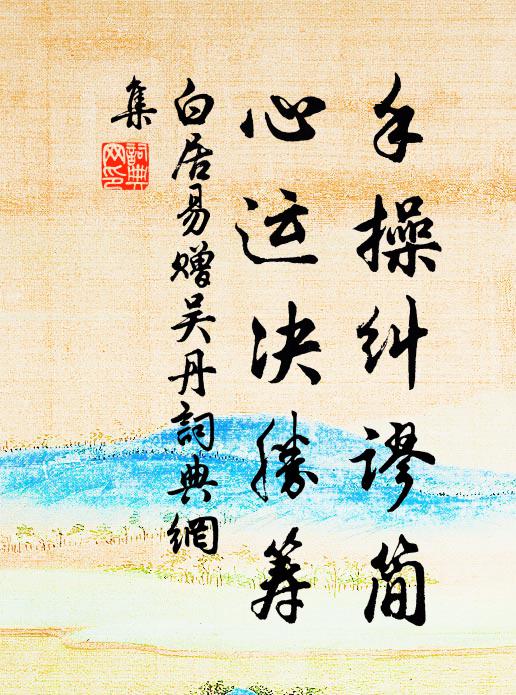 手操纠谬简
心运决胜筹
白居易赠吴丹詞典網
集
詞典
网印